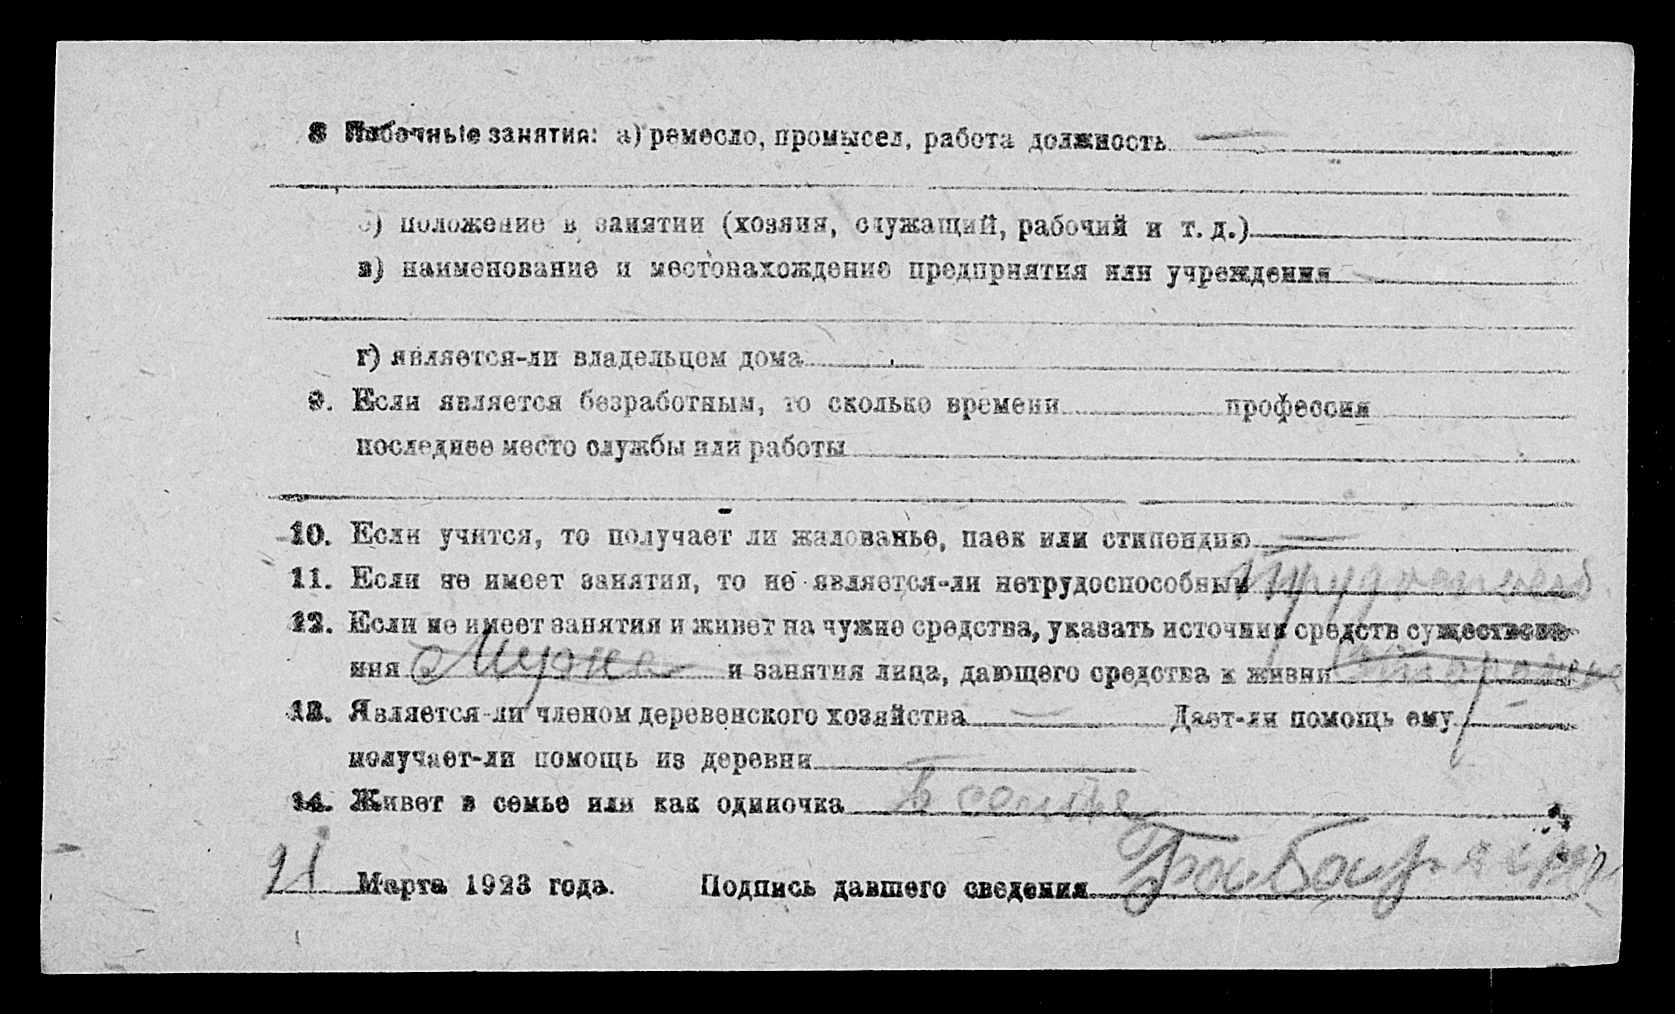 8 Побочные занятия: а) ремесло, промысел, работа должность —
б) положение в занятии (хозяин, служащий, рабочий и т. д.)
в) наименование и местонахождение предприятия или учреждения
г) является-ли владельцем дома
9. Если является безработным, то сколько времени профессия
последнее место службы или работы
10. Если учится, то получает ли жалованье, паек или стипендию —
11. Если не имеет занятия, то не является-ли нетрудоспособным
12. Если не имеет занятия и живет на чужие средства, указать источник средств существова-
ния Мужа и занятия лица, дающего средства к жизни
13. Является-ли членом деревенского хозяйства — Дает-ли помощь ему —
получает-ли помощь из деревни
14. Живет в семье или как одиночка В семье
21 Марта 1923 года. Подпись давшего сведения